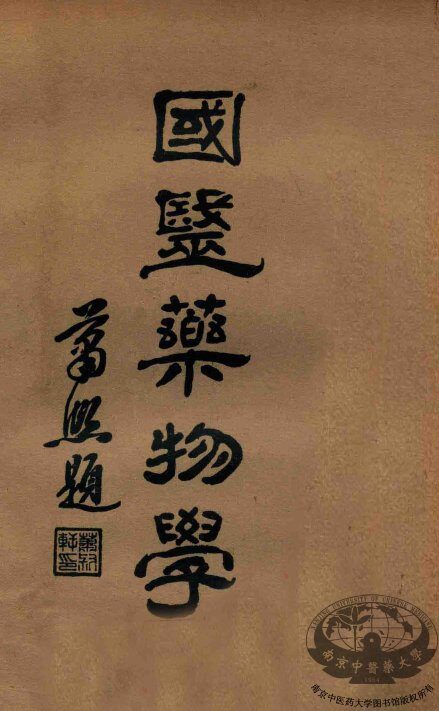 國毉藥物學
蕭熙題
南京中醫藥大學
1954
南京中医药大学图书馆版权所有